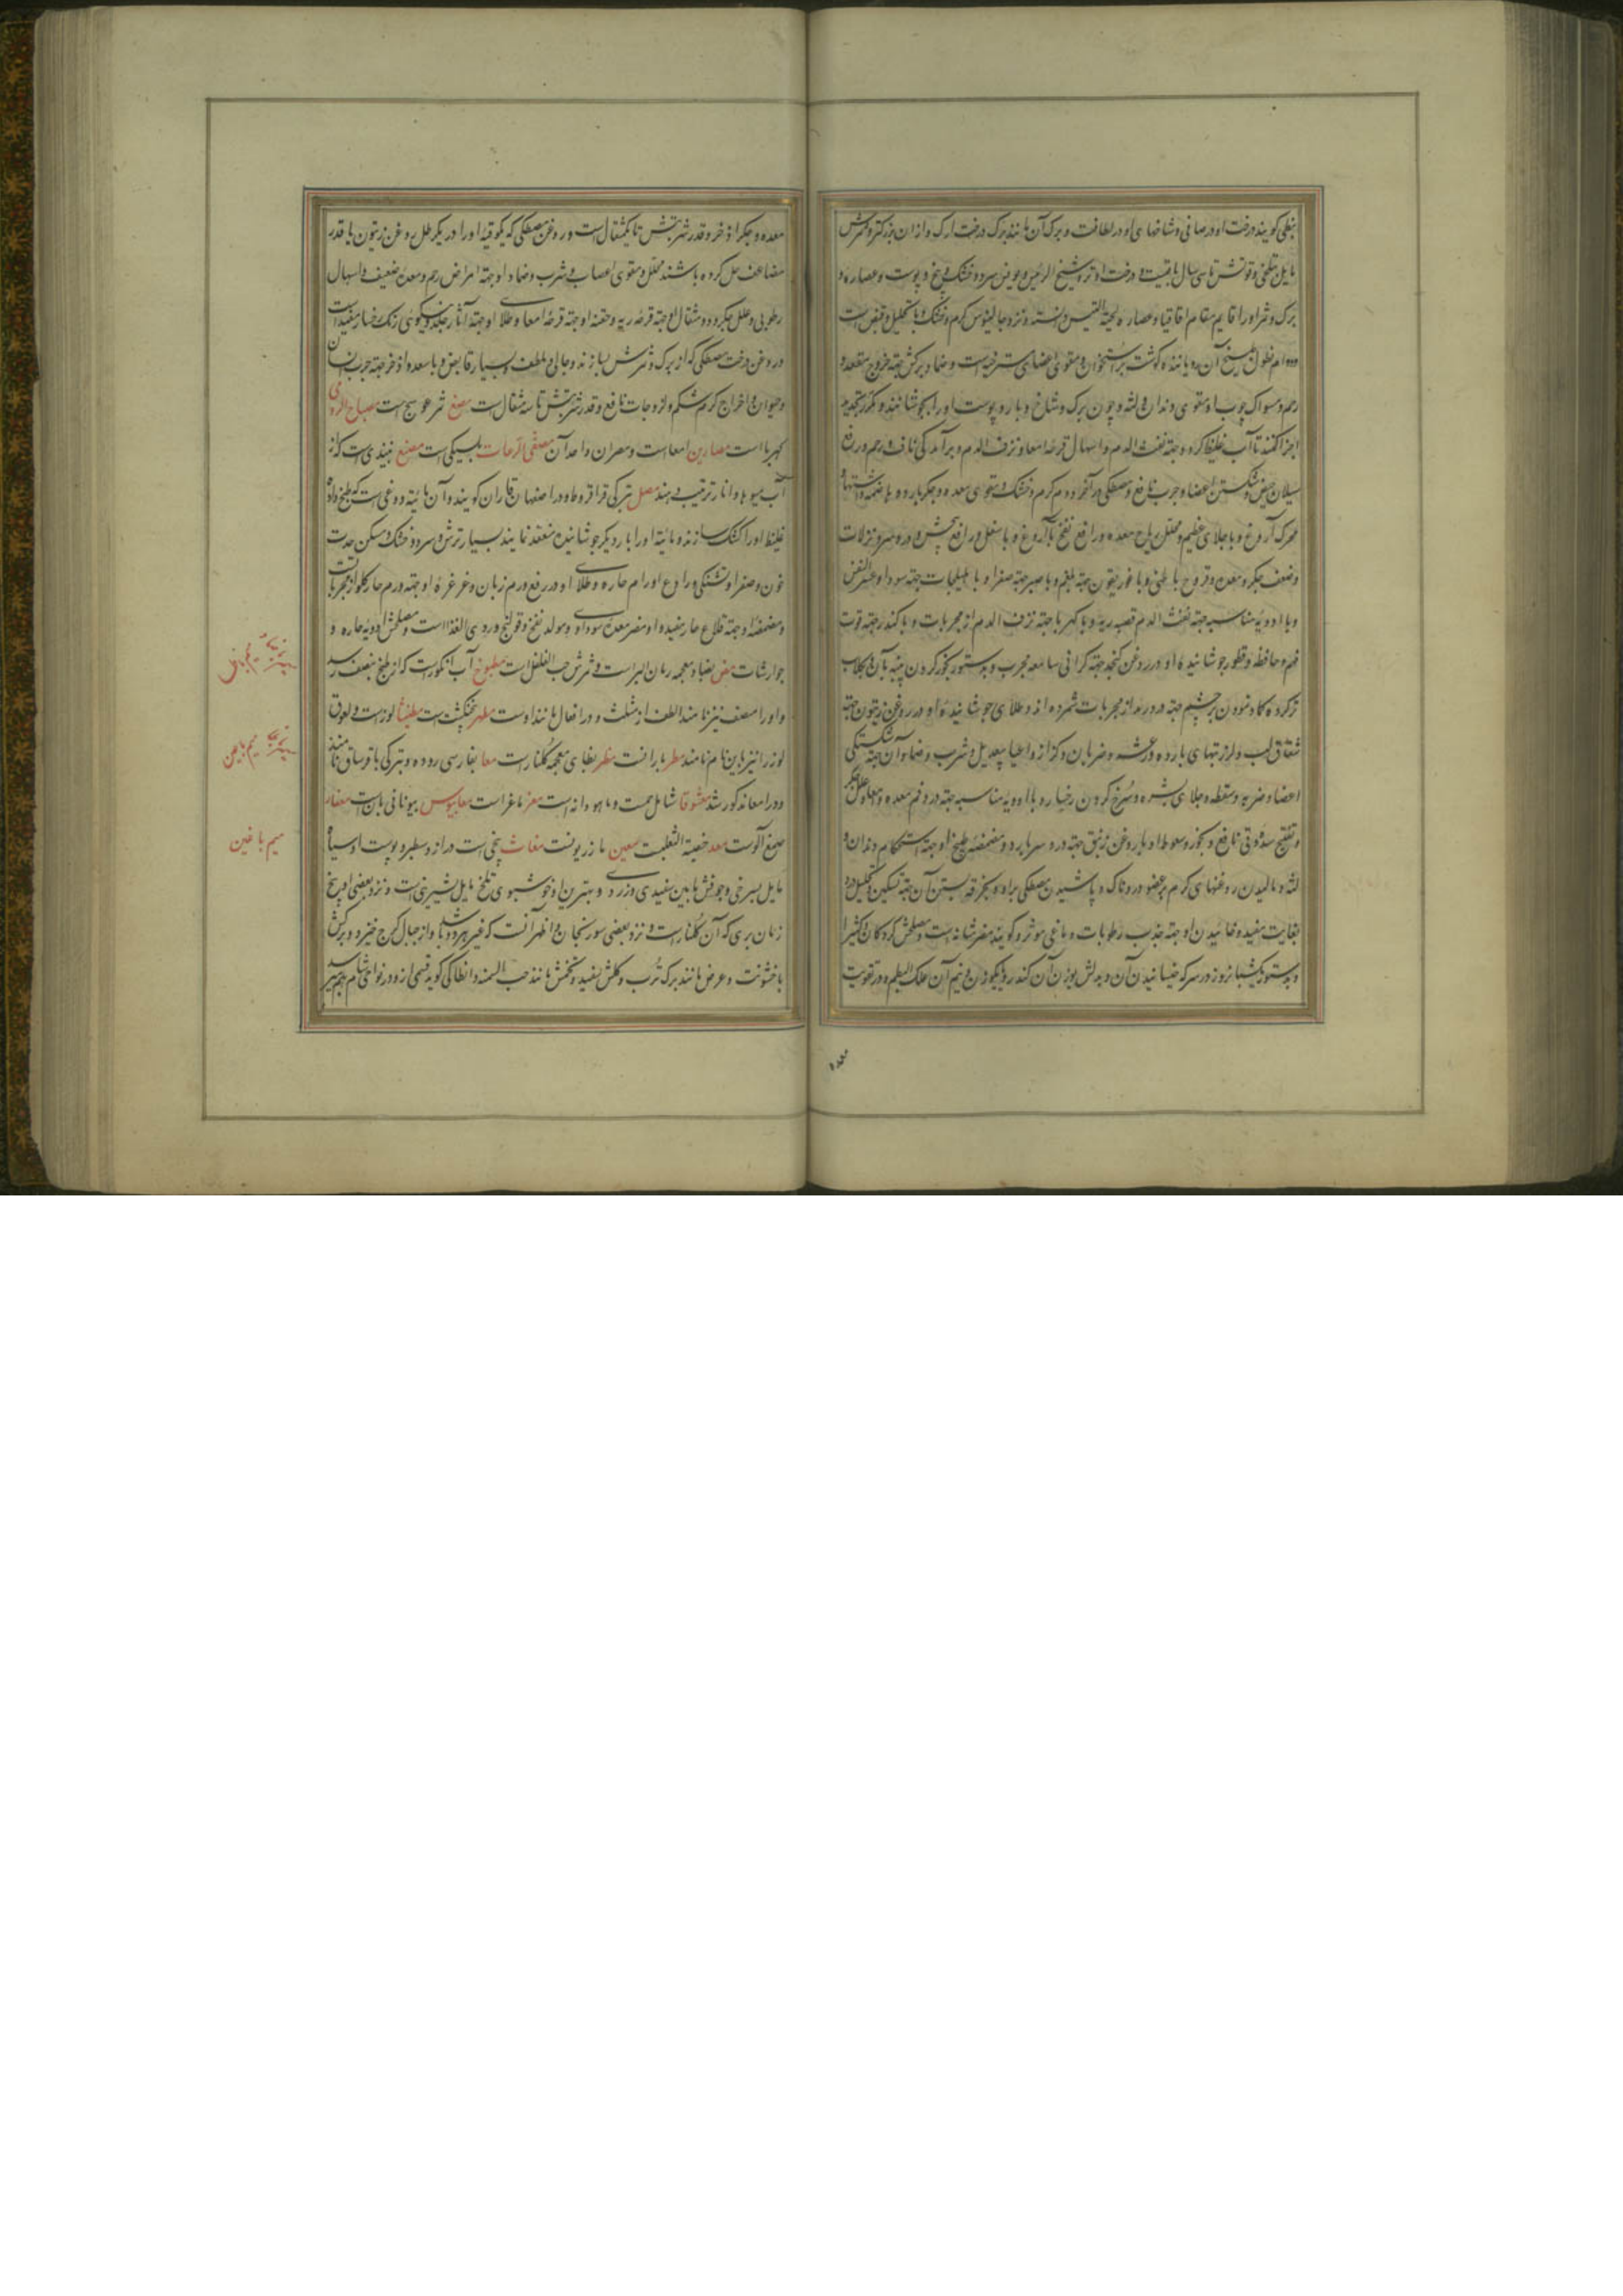 نبطی کویند درخت او در صافی و شاخهای او در لطافت و برک آن مانند برک درخت اراک و از ان بزرکتر و ثمرش
مایل بتلخی و قوتش تا سی سال باقیست و درخت او نزد شیخ الرئیس و بعضی سرد و خشک و بیخ و پوست و عصاره و
برک و ثمر او را قایم مقام اقاقیا و عصاره لحیة التیس دانسته و نزد جالینوس کرم و خشک و با تحلیل و قبض است
نطول طبیخ آن رویاننده کوشت بر استخوان و مقوی اعضای مسترخیه است و ضماد برکش جهة خروج مقعده و
رحم و مسواک چوب او مقوی دندان و لثه و چون برک و شاخ و بار و پوست او را بجوشانند و مکرر تجدید
اجزا کنند تا آب غلیظ کردد جهة نفث الدم و اسهال و قرحه امعا و نزف الدم و برآمدکی ناف و رحم و رفع
سیلان حیض و شکستن اعضا و جرب نافع و مصطکی در آخر دوم کرم و خشک و مقوی معده و جکر بارد و هاضمه و اشتها و
محرک آروغ و با جلای عظیم و محلل ریاح معده و رافع نفخ با آروغ و رافع پیچش و درد سر و نزلات
و ضعف جکر و معده و قروح باطنی و با غاریقون جهة بلغم و با صبر جهة صفرا و با هلیلجات جهة سودا و عسر النفس
و با ادویه مناسبه جهة نفث الدم قصبه ریه و با کهربا جهة نزف الدم از مجربات و با کندر جهة قوت
فهم و حافظه و قطور جوشانیده او در روغن کنجد جهة کرانی سامعه مجرب و بدستور بخور کردن پنبه بآن و بکلاب
تر کرده کماد نمودن بر چشم جهة درد رمد از مجربات شمرده اند و طلای جوشانیده او در روغن زیتون جهة
شقاق لب و لرز تبهای بارده و رعشه و ضربان و کزاز و اعیا بیعدیل و شرب و ضماد آن جهة شکستکی
اعضا و ضربه و سقطه و جلای بشره و سرخ کردن رخسار و با ادویه مناسبه جهة درد فم معده و معا و علل جکر
و تفتیح سده و قی نافع و بخور و سعوط او با روغن زنبق جهة درد سر بارد و مضمضه طبیخ او جهة استحکام دندان و
لثه و مالیدن روغنهای کرم بر عضو دردناک و پاشیدن مصطکی براو و بخرقه بستن آن جهة تسکین و تحلیل درد
بغایت مفید و خائیدن او جهة جذب رطوبات دماغی موثر و کویند مضر مثانه است و مصلحش کثیرا
و بدستور یکشبانروز در سرکه خیسانیدن آن و بدلش بوزن آن کندر و یا یکوزن و نیم آن علک البطم و در تقویت
معده و جکر اذخر و قدر شربتش تا یکمثقال است و روغن مصطکی که یکوقیه او را در یکرطل روغن زیتون یا قدر
مضاعف حل کرده باشند محلل و مقوی اعصاب و شرب و ضماد او جهة امراض رحم و معده ضعیف و اسهال
رطوبی و علل جکر و دو مثقال او جهة قرحه ریه و حقنه او جهة قرحه امعا و طلای او جهة آثار جلد و نیکوئی رنک رخسار مفید است
و روغن درخت مصطکی که از برک و ثمرش بسازند و جالی و ملطف و بسیار قابض و با سعد و اذخر جهة جرب انسان
و حیوان و اخراج کرم شکم و لزوجات نافع و قدر شربتش تا سه مثقال است مصع ثمر عوسج است مصباح الروم
کهربا است مصارین امعا است و مصران واحد آن مصفی الرعات بلبیکی است مصنع نبیذی است که از
آب میوها و انار ترتیب دهند مصل بترکی قراقروط و در اصفهان قاران کویند و آن مائیة دوغی است که طبخ داده
غلیظ او را کشک سازند و مائیة او را بار دیکر جوشانیده منعقد نمایند بسیار ترش و سرد و خشک و مسکن حدت
خون و صفرا و تشنکی و رادع اورام حاره و طلای او در رفع ورم زبان و غرغره او جهة ورم حار کلو از مجربات
و مضمضه او جهة قلاع حار مفید و او مضر معده سوداوی و مولد نفخ و قولنج و ردی الغذا است و مصلحش ادویه حاره و
جوارشات مض بضاد معجمه رمان البر است و ثمرش حب القلقل است مطبوخ آب انکور است که از طبخ بنصف رسد
و او را منصف نیز نامند الطف از مثلث و در افعال مانند اوست مطهر پنجنکشت است مطبثا لوز است و لعوق
لوز را نیز باین نام نامند مطر بارانست مظر بظای معجمه کلنار است معا بفارسی روده و بترکی باغرساق نامند
و در امعا مذکور شد معشوقا شامل حمت و ماهودانه است معز ماعز است معاپیوس بیونانی مان است معفار
صمغ آلوست معد خصیة الثعلبست معین مازریونست مغاث بیخی است دراز و سطبر و پوست او سیاه
مایل بسرخی و جوفش مابین سفیدی و زردی و بهترین او خوشبوی تلخ مایل بشیرینی است و نزد بعضی او بیخ
رمان بری که آن کلنار است و نزد بعضی سورنجان و اظهر آنست که غیر هردو باشد و از جبال کرج خیزد و برکش
با خشونت و عرض مانند برک ترب و کلش سفید و تخمش مانند حب السمنه و انطاکی کوید قسمی ازو در نواحی شام بهم میرسد
میم با عین
میم با غین